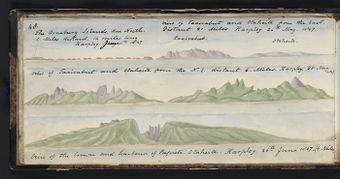 48.
The Danaburg Islands, from North.
6 Miles distant, 14 miles long
Harpley June 1847.
view of Taairabut and Otaheite from the East.
Distant 20 Miles Harpley 24th May. 1847.
Taairabut.
Otaheite.
view of Taairabut and Otaheite from the N.E. distant 6 Miles. Harpley 25 May
View of the town and harbour of Papeete. Otaheite. Harpley 26th June 1847.